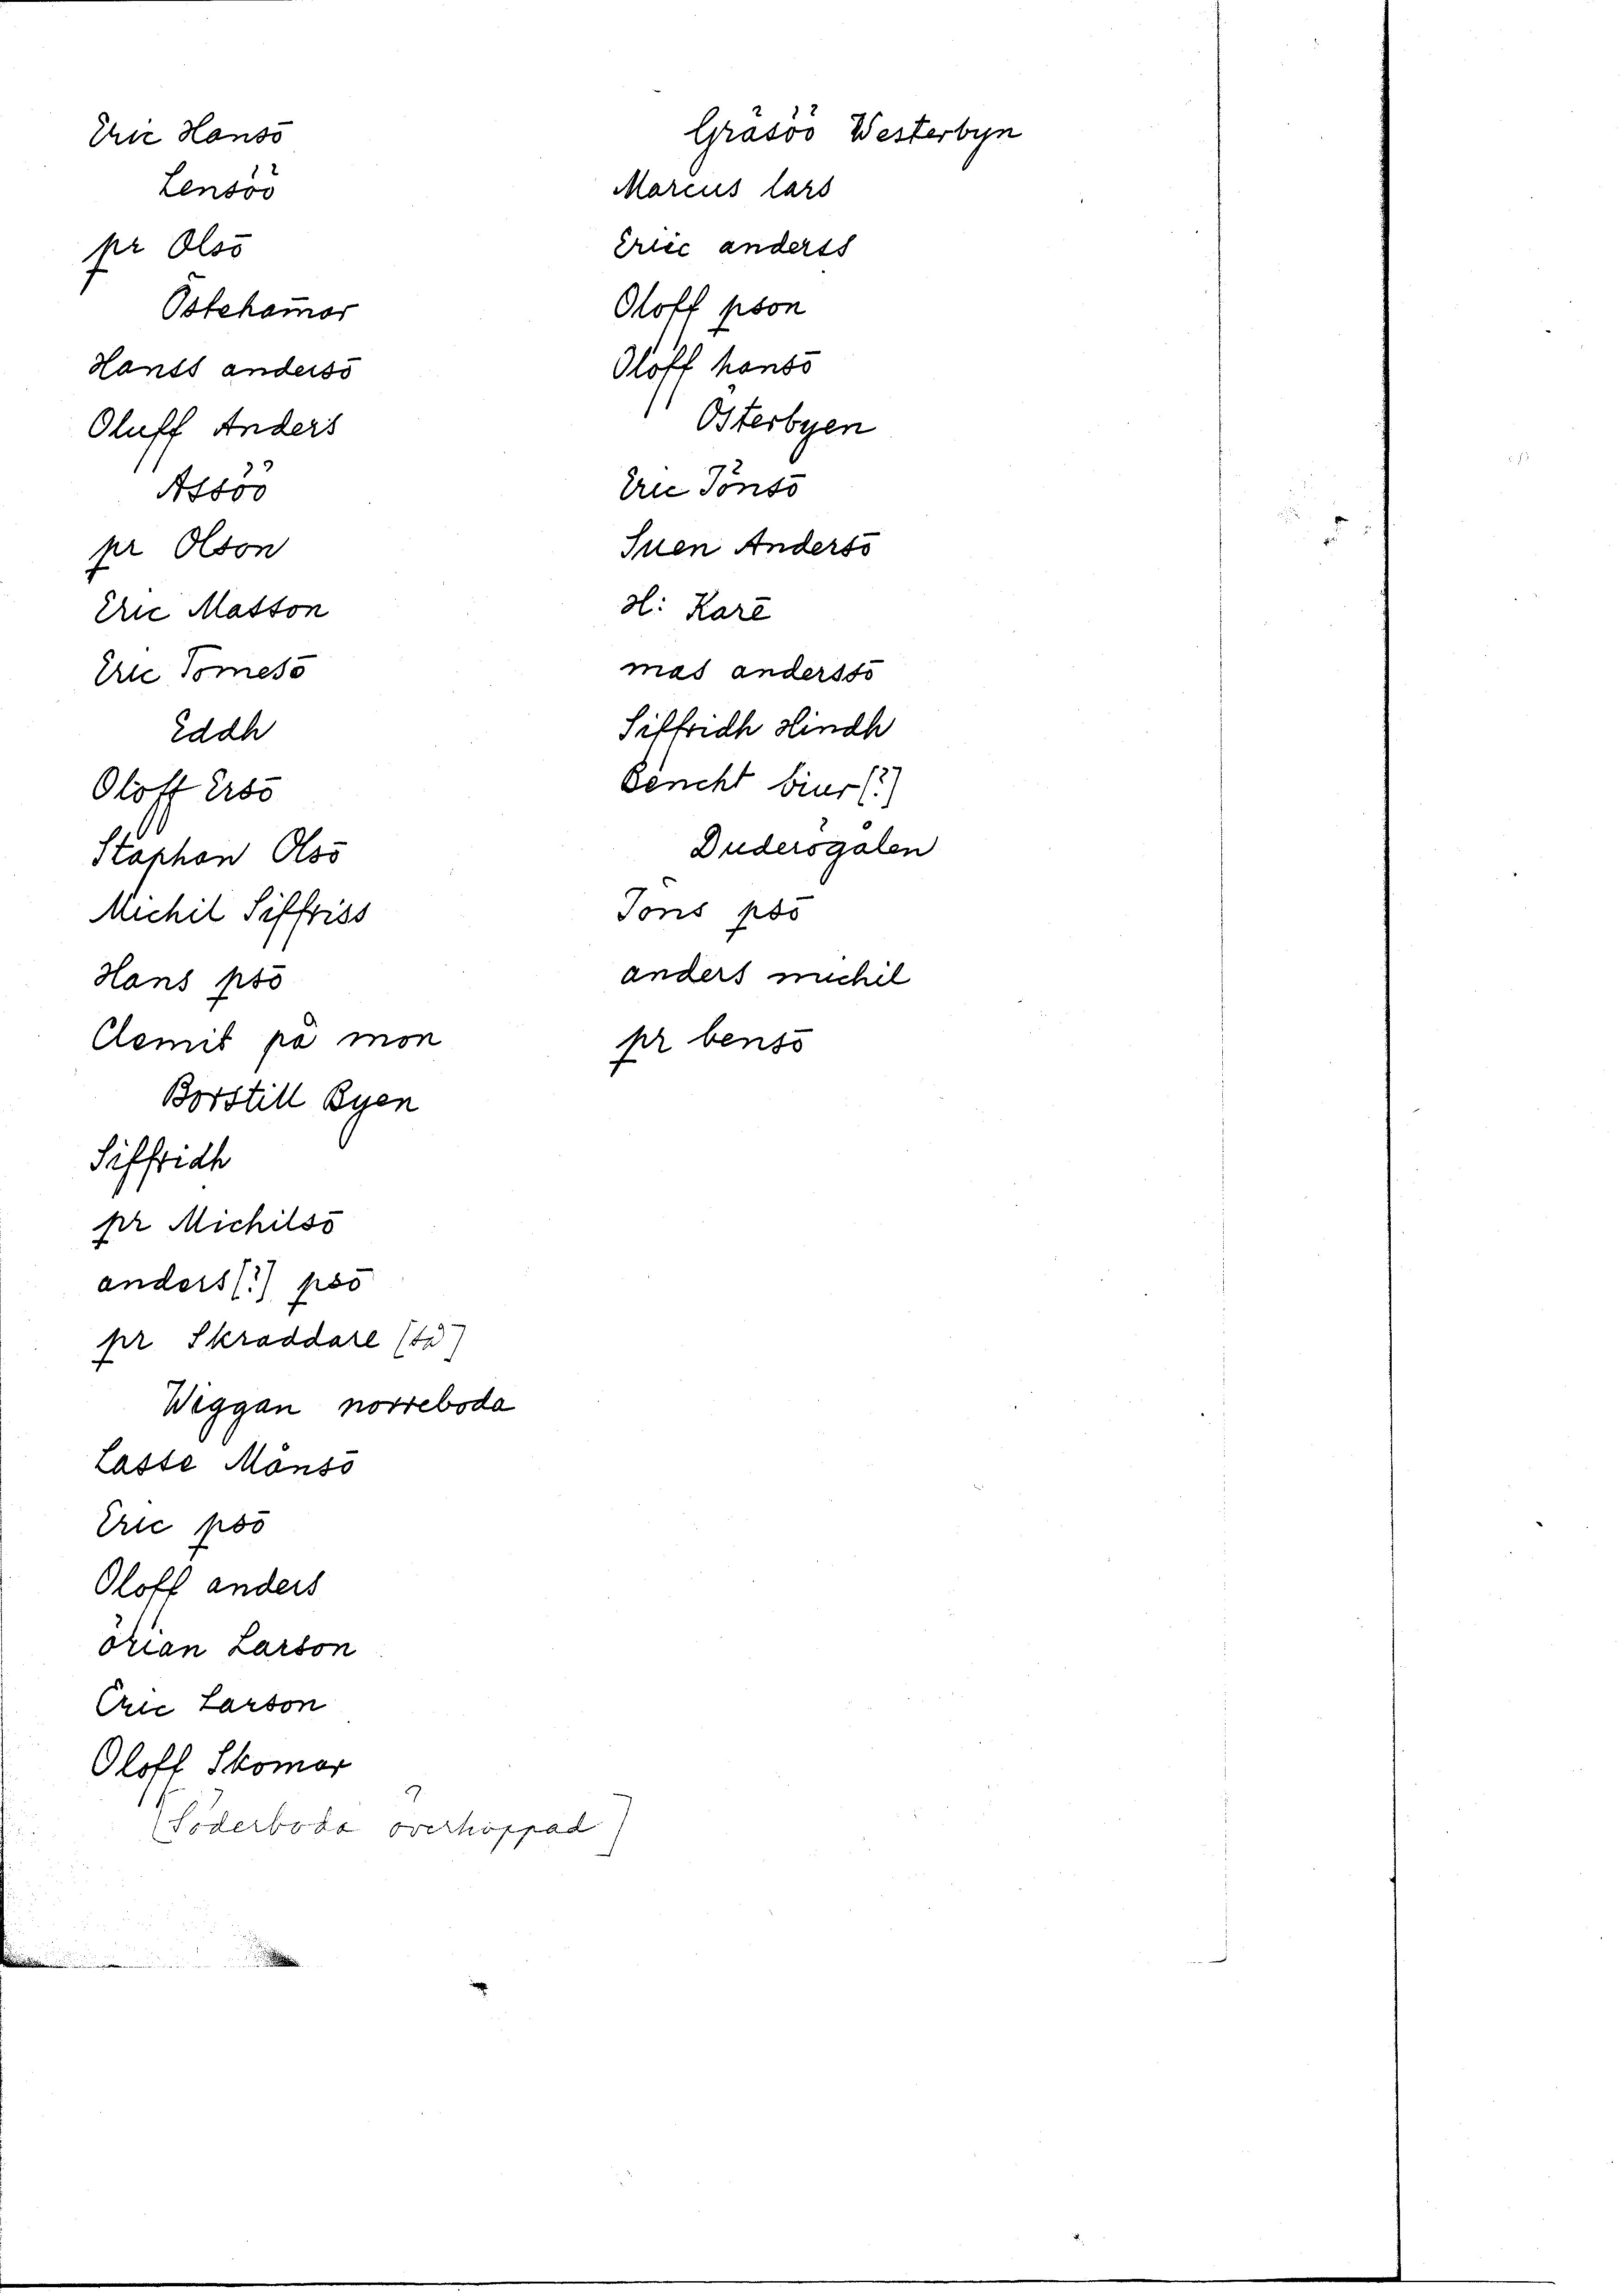 Eric Hansō
Lensöö
pr Olsō
Östeham̄ar
Hanss andersō
Oluff Anders
Assöö
pr Olson
Eric Matson
Eric Tomesō
Eddh
Oloff Ersō
Staphan Olsō
Michil Siffriss
Hans psō
Clemit på mon
Borstill Byen
Siffridh
pr Michilsō
anders(?) psō
pr Skraddare
Wiggan norreboda
Lasse Månsō
Eric psō
Oloff anders
örian Larson
Eric Larson
Oloff Skomar
(Söderboda överhoppad)
Gräsöö Westerbyn
Marcus lars
Eric anderss
Oloff pson
Oloff hansō
Österbyen
Eric Jönsō
Suen Andersō
H: Karē
mas anderssō
Siffridh Hindh
Bencht biur(?)
Duderögålen
Jöns psō
anders michil
pr bensō